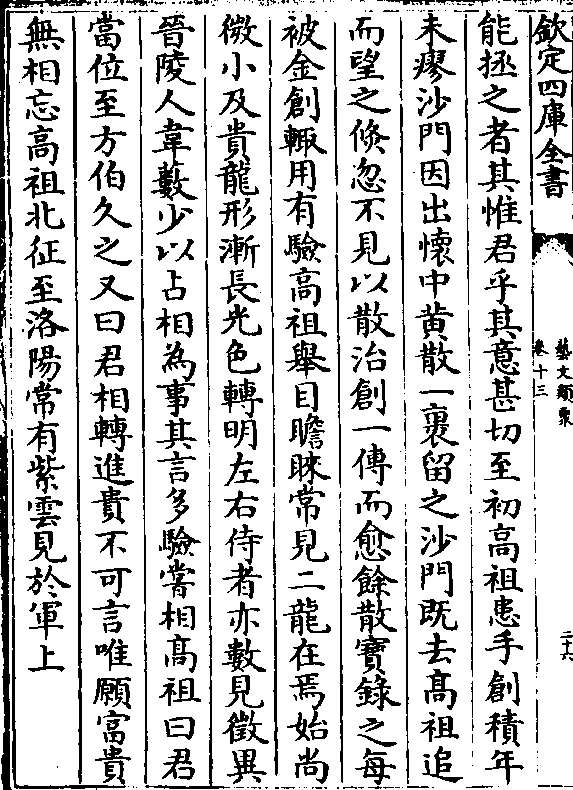 欽定四庫全書
藝文類聚
卷十三
二十六
能拯之者其惟君乎其意甚切至初高祖患手創積年
未瘳沙門因出懷中黄散一裹留之沙門既去髙祖追
而望之倐忽不見以散治創一傅而愈餘散寶錄之每
被金創輙用有驗高祖舉目瞻睞常見二龍在焉始尚
微小及貴龍形漸長光色轉明左右侍者亦數見徵異
晉陵人韋藪少以占相為事其言多驗嘗相髙祖曰君
當位至方伯久之又曰君相轉進貴不可言唯願富貴
無相忘高祖北征至洛陽常有紫雲見於軍上